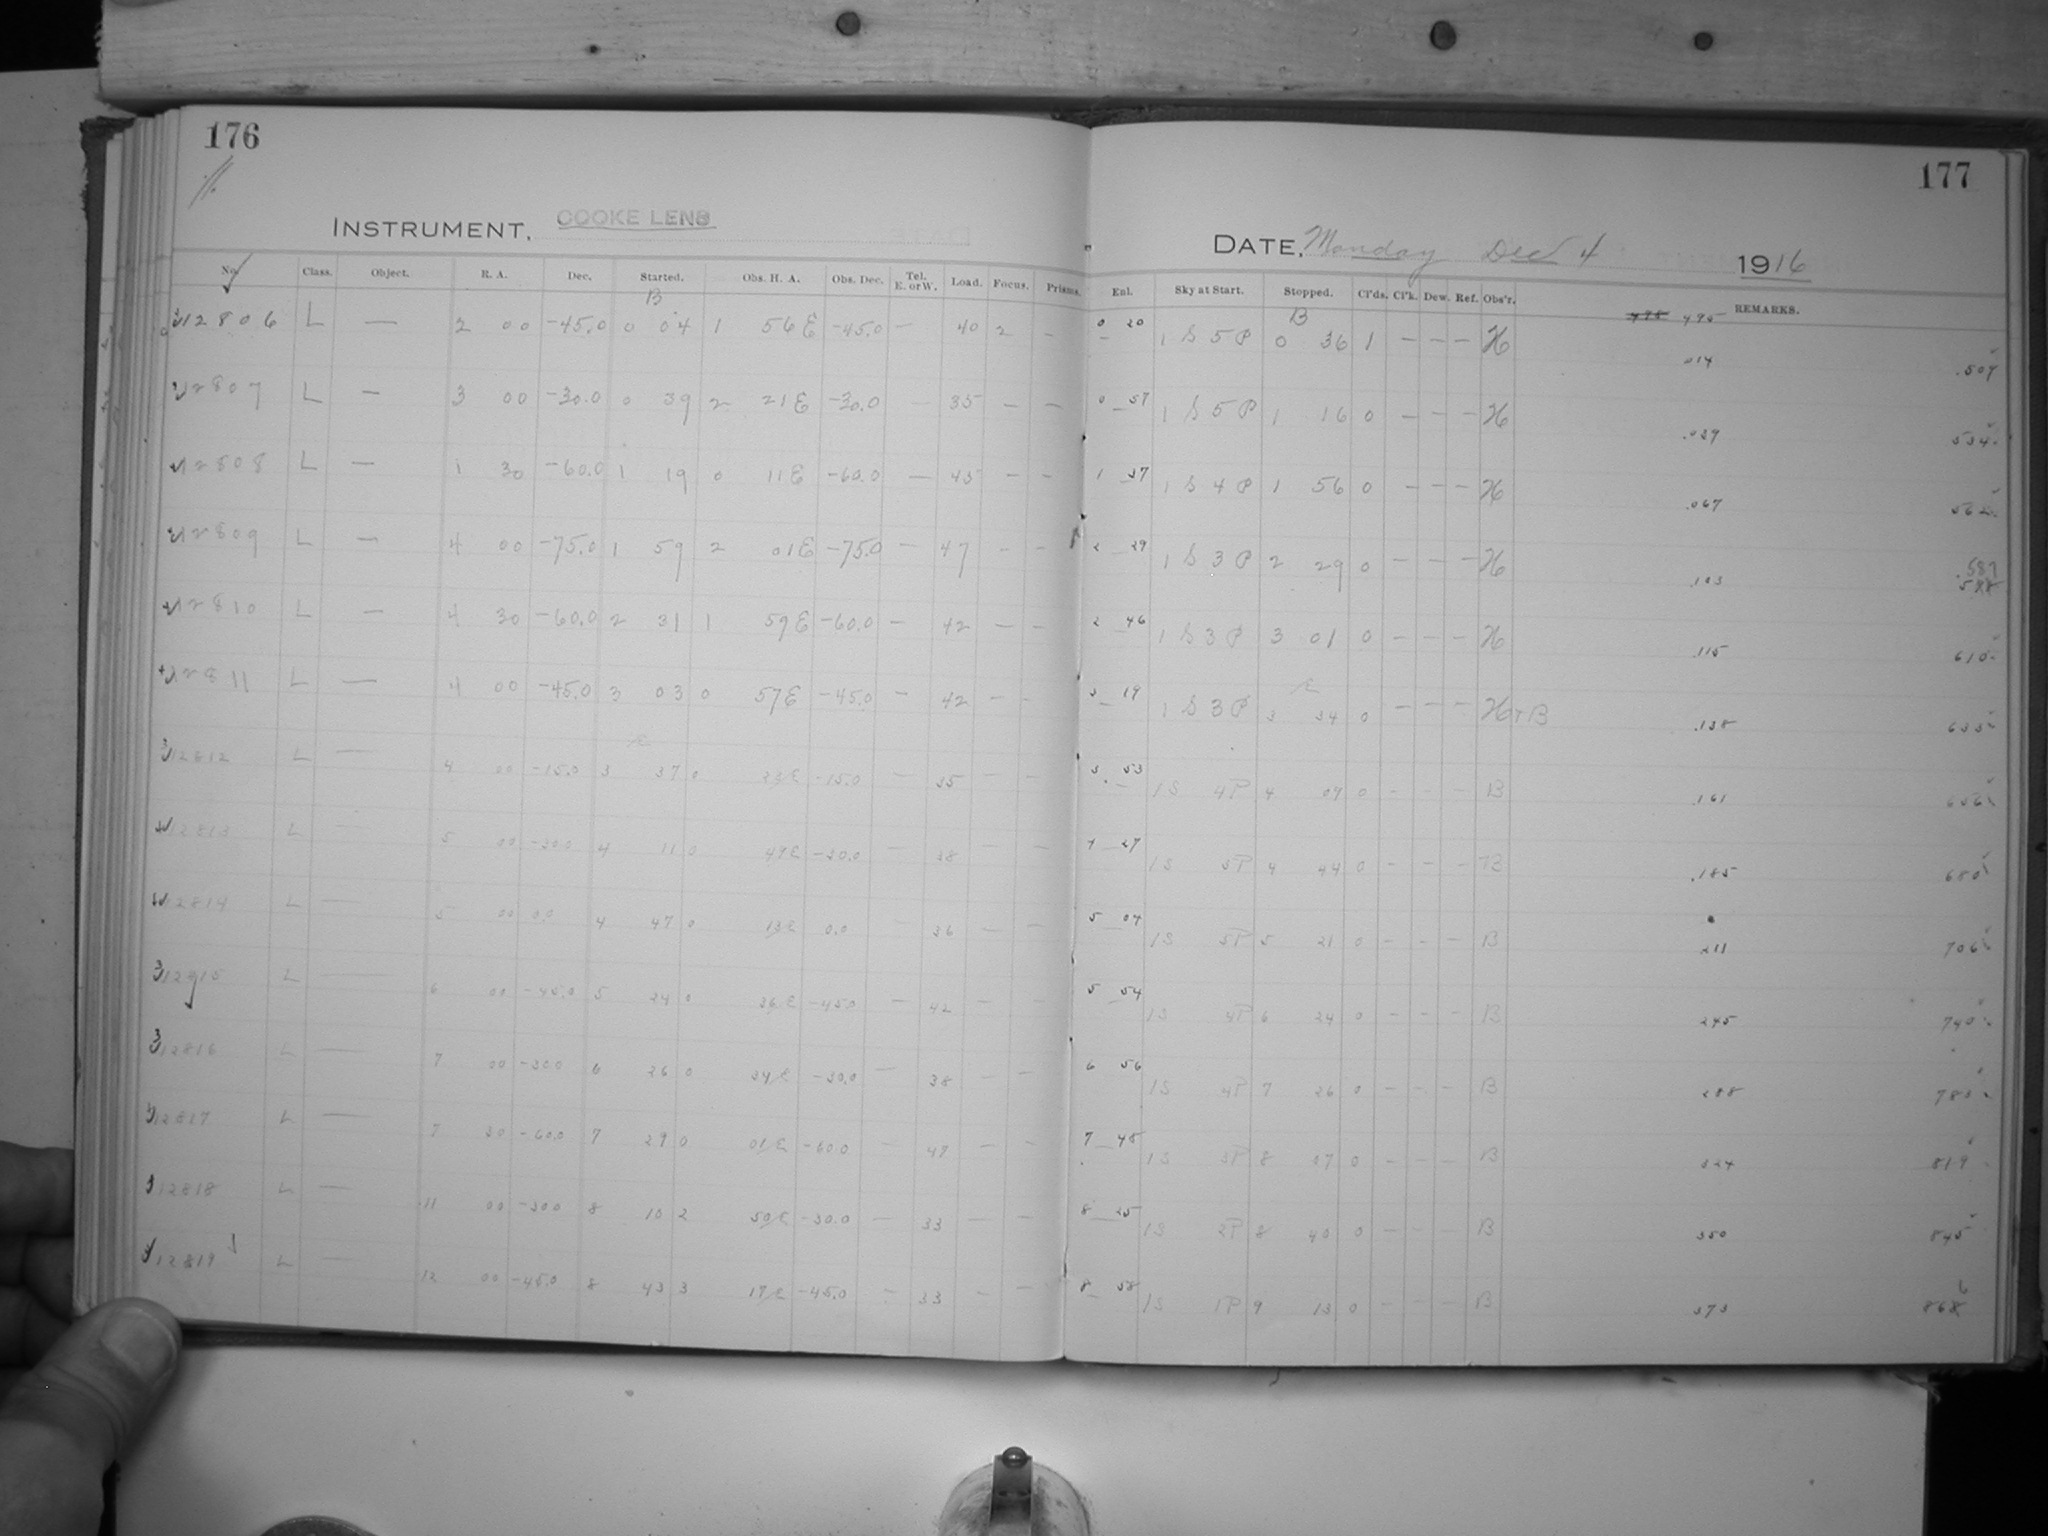 176
177
INSTRUMENT, COOKE LENS
DATE, Monday Dec 4 1916
No. Class. Object. R. A. Dec. Started. Obs. H. A. Obs. Dec. Tel. E. or W. Load. Focus. Prisms. Enl. Sky at Start. Stopped. Cl'ds. Cl'k. Dew. Ref. Obs'r. REMARKS.
B B 495
12806 L — 2 00 -45.0 0 04 1 56 E -45.0 — 40 2 — 0 20 1 S 5 P 0 36 1 — — — H .014 .509
12807 L — 3 00 -30.0 0 39 2 21 E -30.0 — 35 — — 0 57 1 S 5 P 1 16 0 — — — H .039 534
12808 L — 1 30 -60.0 1 19 0 11 E -60.0 — 45 — — 1 37 1 S 4 P 1 56 0 — — — H .067 562
12809 L — 4 00 -75.0 1 59 2 01 E -75.0 — 47 — — 2 29 1 S 3 P 2 29 0 — — — H .103 .587 .598
12810 L — 4 30 -60.0 2 31 1 59 E -60.0 — 42 — — 2 46 1 S 3 P 3 01 0 — — — H .115 610
12811 L — 4 00 -45.0 3 03 0 57 E -45.0 — 42 — — 3 19 1 S 3 P 3 34 0 — — — H + B .138 633
12812 L — 4 00 -15.0 3 37 0 23 E -15.0 — 35 — — 3 53 1 S 4 P 4 09 0 — — — B .161 656
12813 L — 5 00 -30.0 4 11 0 49 E -30.0 — 38 — — 4 27 1 S 5 P 4 44 0 — — — B .185 680
12814 L — 5 00 0.0 4 47 0 13 E 0.0 — 36 — — 5 04 1 S 5 P 5 21 0 — — — B 211 706
12915 L — 6 00 -45.0 5 24 0 36 E -45.0 — 42 — — 5 54 1 S 4 P 6 24 0 — — — B 245 740
12816 L — 7 00 -30.0 6 26 0 34 E -30.0 — 38 — — 6 56 1 S 4 P 7 26 0 — — — B 288 783
12817 L — 7 30 -60.0 7 29 0 01 E -60.0 — 47 — — 7 48 1 S 3 P 8 07 0 — — — B 324 819
12818 L — 11 00 -30.0 8 10 2 50 E -30.0 — 33 — — 8 25 1 S 2 P 8 40 0 — — — B 350 845
12819 L — 12 00 -45.0 8 43 3 17 E -45.0 — 33 — — 8 58 1 S 1 P 9 13 0 — — — B 373 868